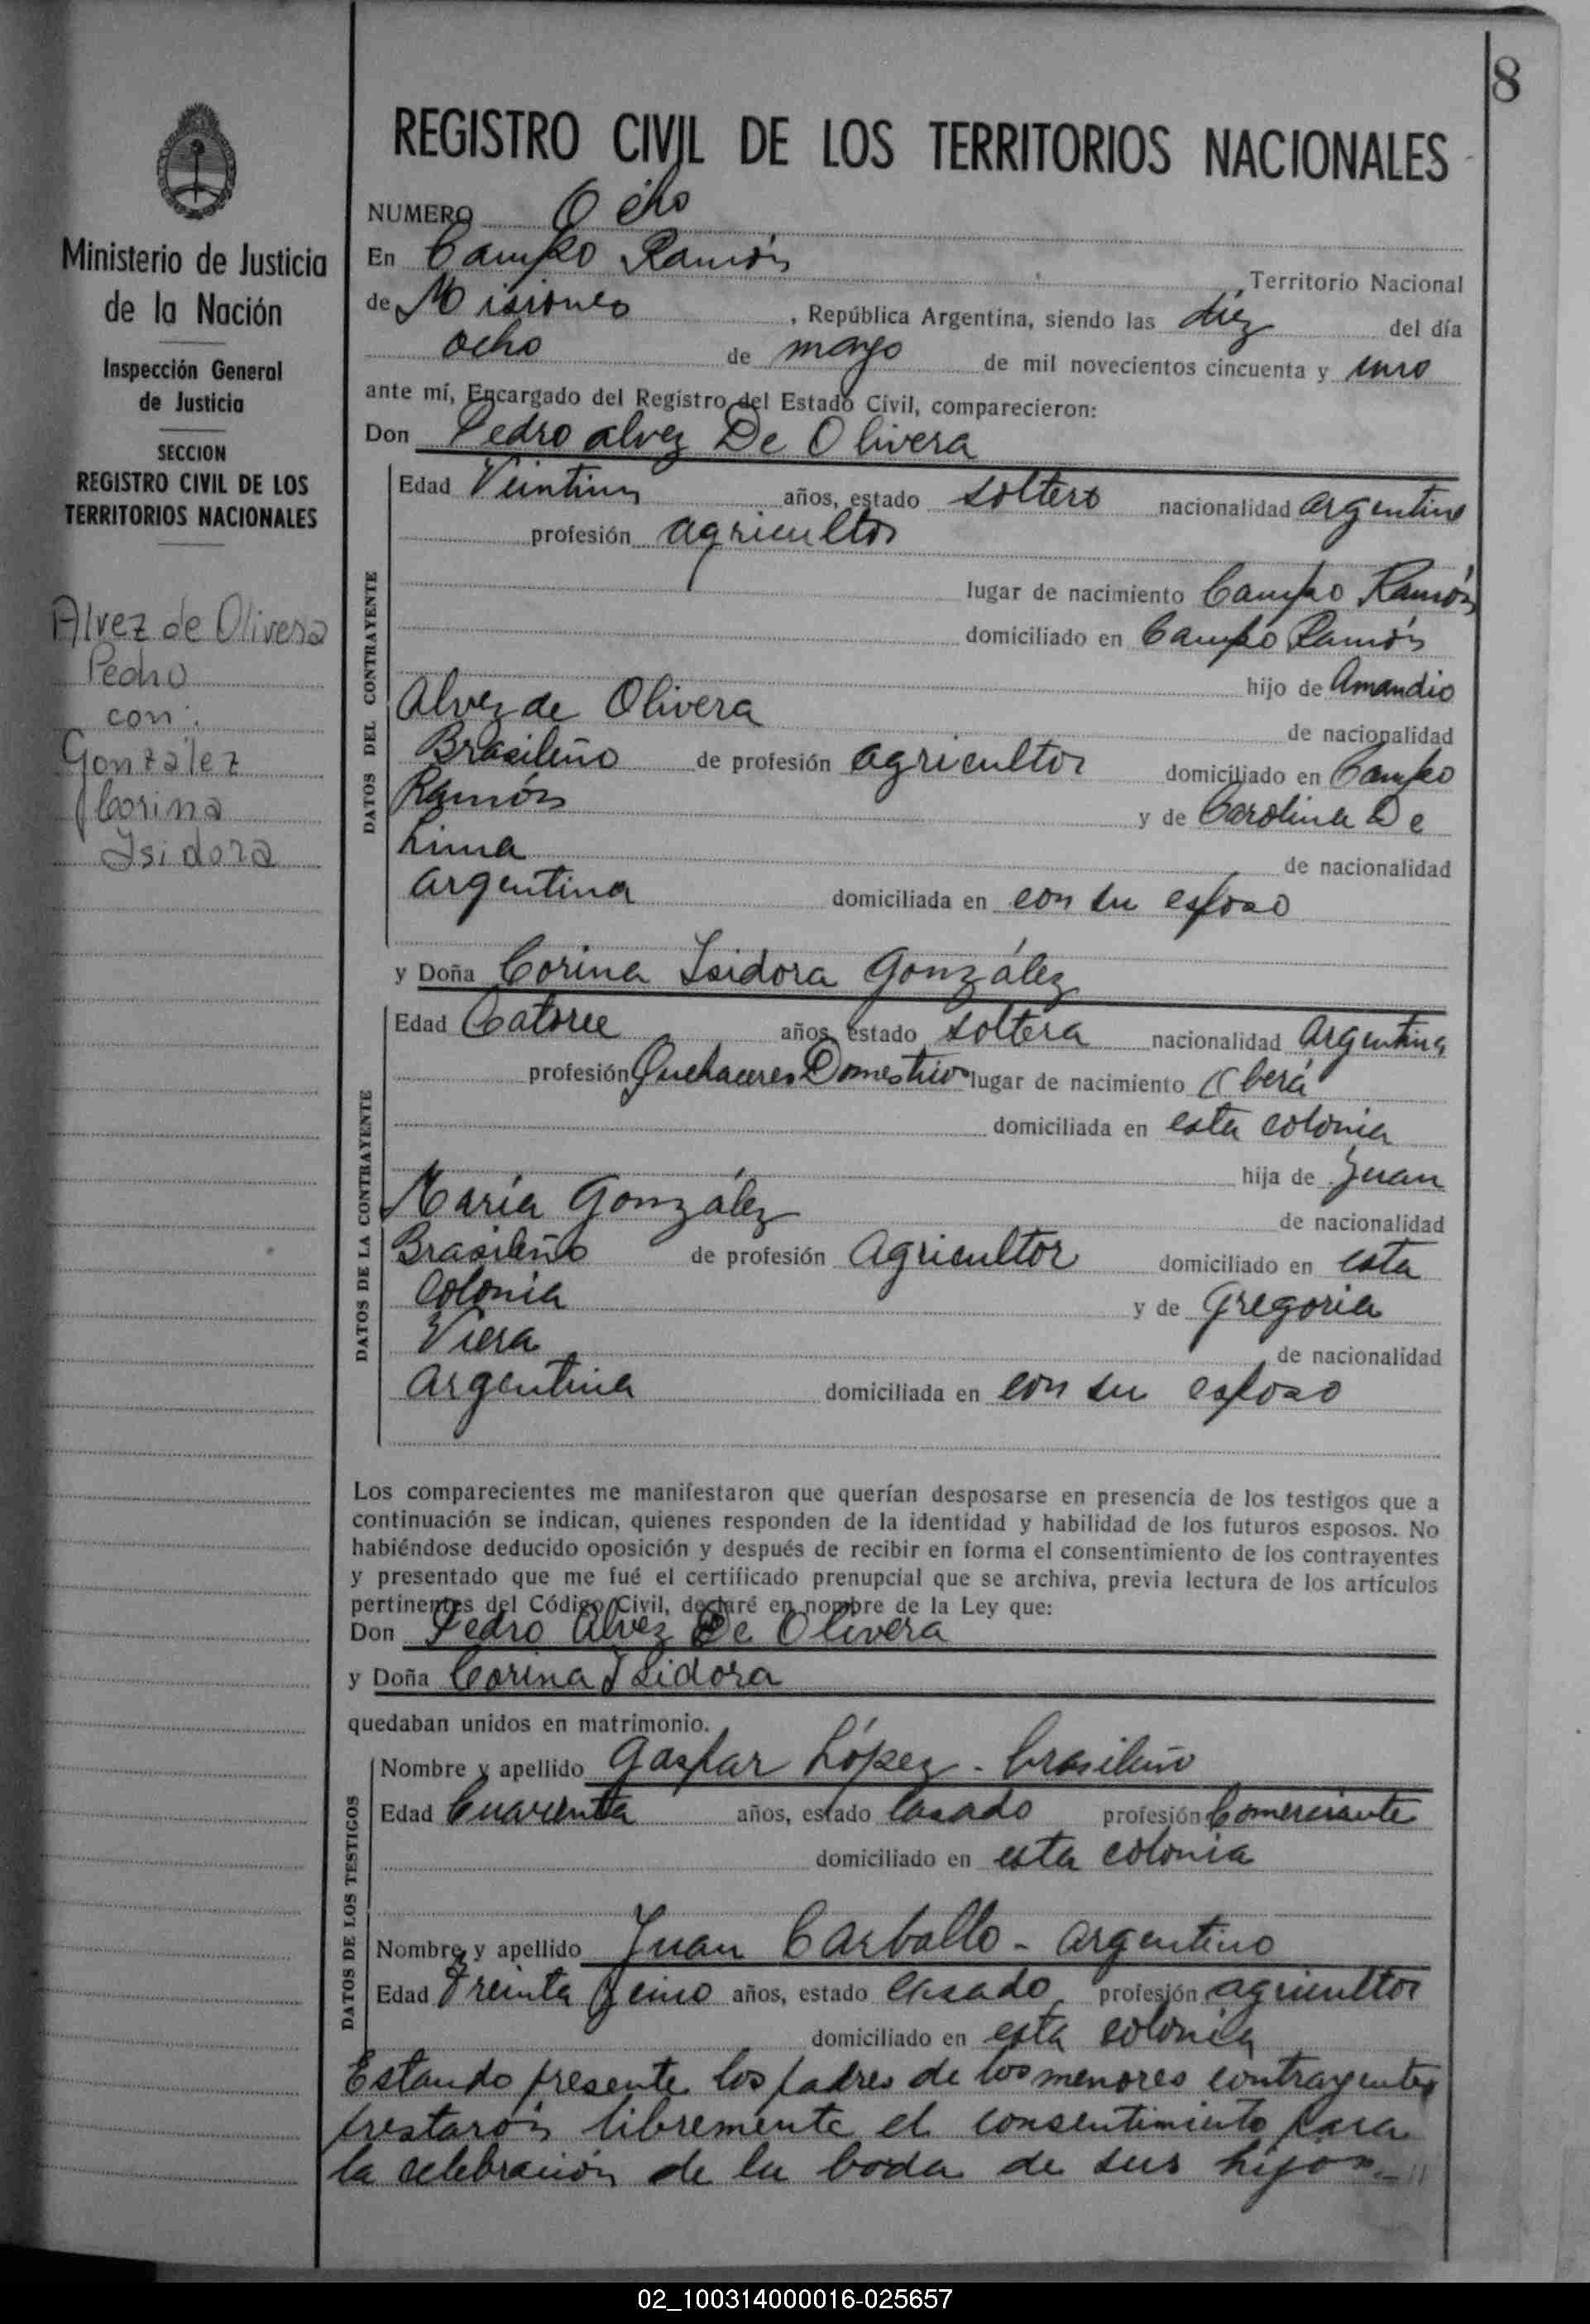 8
REGISTRO CIVIL DE LOS TERRITORIOS NACIONALES
Ministerio de Justicia
de la Nación
Inspección General
de Justicia
SECCION
REGISTRO CIVIL DE LOS
TERRITORIOS NACIONALES
Alvez de Olivera
Pedro
con:
González
Corina
Isidora
NUMERO Ocho
En Campo Ramón
Territorio Nacional
de Misiones, República Argentina, siendo las diez del día
ocho de mayo de mil novecientos cincuenta y uno
ante mí, Encargado del Registro del Estado Civil, comparecieron:
Don Pedro alvez De Olivera
DATOS DEL CONTRAYENTE
Edad Veintiun años, estado soltero nacionalidad argentino
profesión agricultor
lugar de nacimiento Campo Ramón
domiciliado en Campo Ramón
hijo de Amandio
Alvez de Olivera
de nacionalidad
Brasileño de profesión agricultor domiciliado en Campo
Ramón y de Carolina De
Lima de nacionalidad
argentina domiciliada en con su esposo
y Doña Corina Isidora González
DATOS DE LA CONTRAYENTE
Edad Catorce años, estado soltera nacionalidad Argentina
profesión Quehaceres Domestico lugar de nacimiento Oberá
domiciliada en esta colonia
hija de Juan
María González de nacionalidad
Brasileño de profesión Agricultor domiciliado en esta
colonia y de Gregoria
Viera de nacionalidad
argentina domiciliada en con su esposo
Los comparecientes me manifestaron que querían desposarse en presencia de los testigos que a
continuación se indican, quienes responden de la identidad y habilidad de los futuros esposos. No
habiéndose deducido oposición y después de recibir en forma el consentimiento de los contrayentes
y presentado que me fué el certificado prenupcial que se archiva, previa lectura de los artículos
pertinentes del Código Civil, declaré en nombre de la Ley que:
Don Pedro Alvez De Olivera
y Doña Corina Isidora
quedaban unidos en matrimonio.
DATOS DE LOS TESTIGOS
Nombre y apellido Gaspar López - brasileño
Edad Cuarenta años, estado Casado profesión Comerciante
domiciliado en esta colonia
Nombre y apellido Juan Carballo - argentino
Edad Treinta años, estado casado profesión agricultor
domiciliado en esta colonia
Estando presente los padres de los menores contrayentes
prestarón libremente el consentimiento para
la celebración de la boda de sus hijos.-
02_100314000016-025657